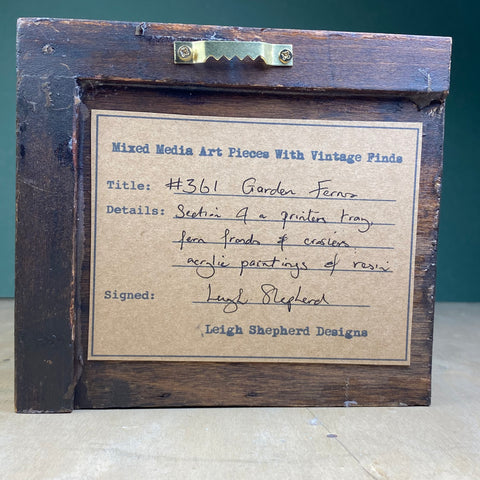 Mixed Media Art Pieces With Vintage Finds
Title: #361 Garden Ferns
Details: Section of a printers tray,
fern fronds & crosiers,
acrylic paintings & resin
Signed: Leigh Shepherd
Leigh Shepherd Designs